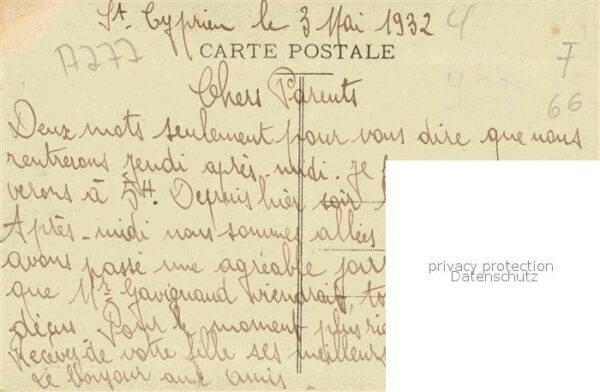 St. Cyprien le 3 Mai 1932
4
CARTE POSTALE
A277
F
66
Chers Parents
Deux mots seulement pour vous dire que nous
rentrerons jeudi après midi. Je
verons à 5H. Depuis hier soir
Après-midi nous sommes allées
avons passé une agréable
que Mr Gavignaud viendrait,
déçus. Pour le moment plus
Recevez de votre fille ses meilleurs
Le bonjour aux amis
privacy protection
Datenschutz